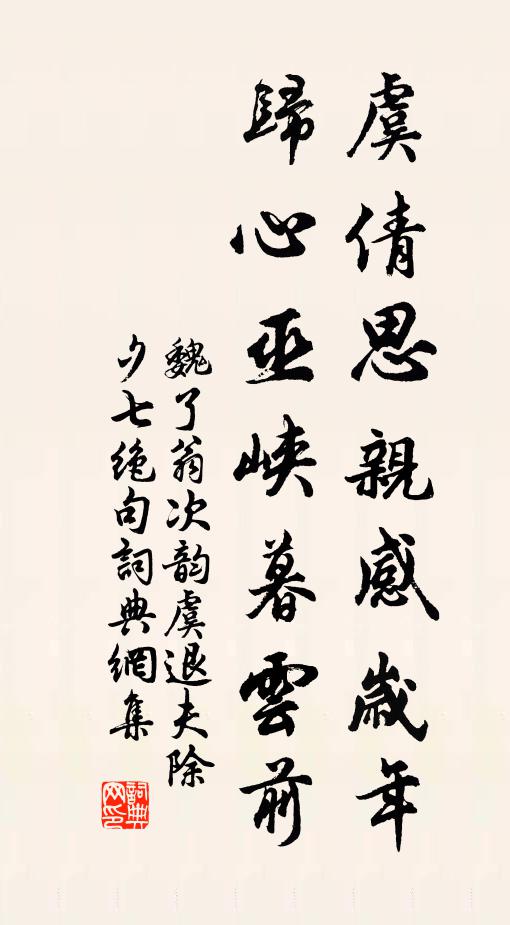 虞倩思親感歲年
歸心巫峽暮雲前
魏了翁次韵虞退夫除
夕七絕句詞典網集
詞典
网印